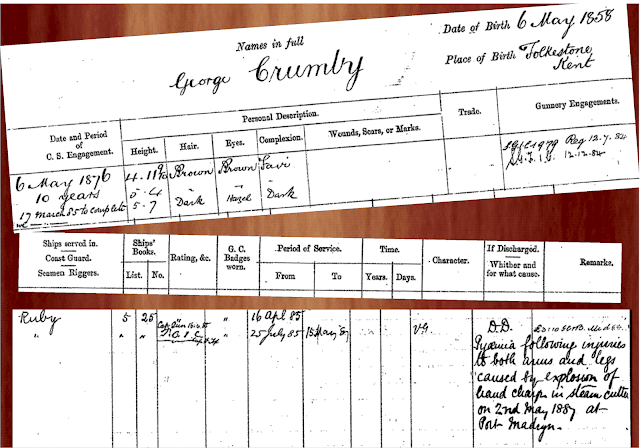 Names in full
Date of Birth 6 May 1858
George Crumby
Place of Birth Folkestone
Kent
Date and Period
of
C. S. Engagement.
Personal Description.
Height.
Hair.
Eyes.
Complexion.
Wounds, Scars, or Marks.
Trade.
Gunnery Engagements.
6 May 1876
4.11 Brown Brown Fair
Reg 12.7.84
10 years
5.4
12.12.84
17 March 85 to complete
5.7 Dark Hazel Dark
Ships served in.
Coast Guard.
Seamen Riggers.
Ships'
Books.
List.
No.
Rating, &c.
G. C.
Badges
worn.
Period of Service.
From
To
Time.
Years.
Days.
Character.
If Discharged.
Whither and
for what cause.
Remarks.
Ruby 5 25 " 16 Apl 85
" " " " 25 July 85 15 May 87 V.G. D.D.
Pyæmia following injuries
to both arms and legs
caused by explosion of
hand charge in steam cutter
on 2nd May 1887 at
Port Madryn.